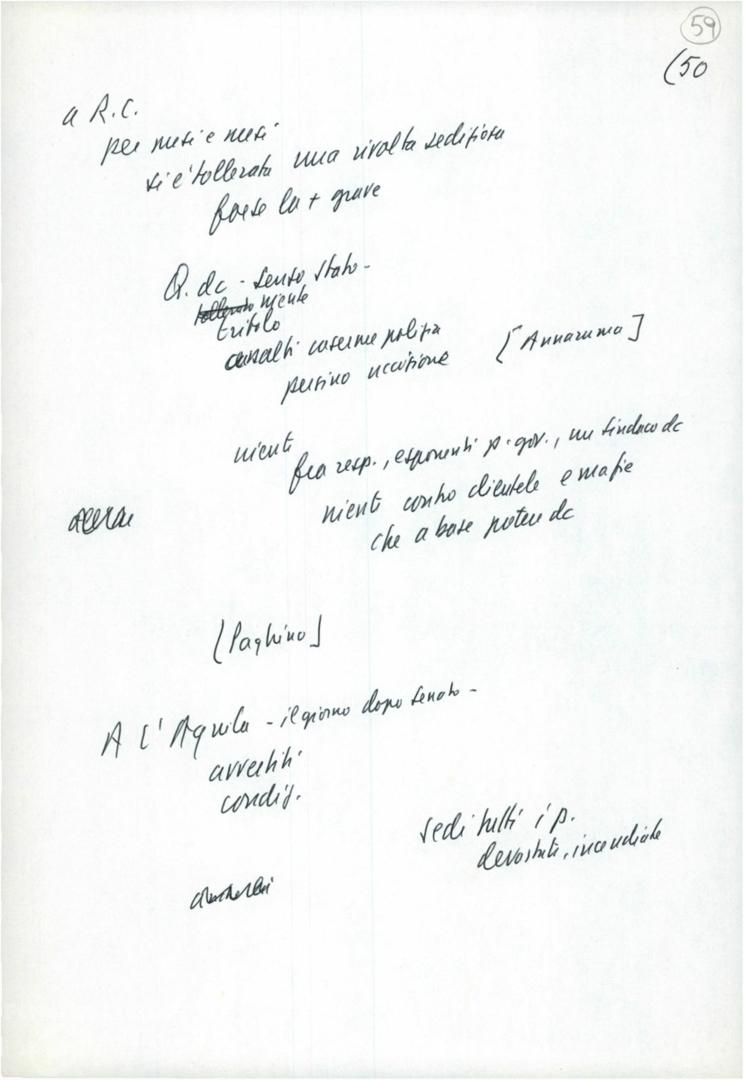 59
(50
a R.C.
per mesi e mesi
si è tollerata una rivolta sediziosa
forse la + grave
Q. dc - senso stato -
niente
tritolo
assalti caserme polizia [Annarumma]
persino uccisione
niente
fra resp., esponenti p. gov., un sindaco dc
niente contro clientele e mafie
che a base potere dc
A L'Aquila - il giorno dopo Senato -
avvertiti
condiz.
sedi tutti i p.
devastate, incendiate